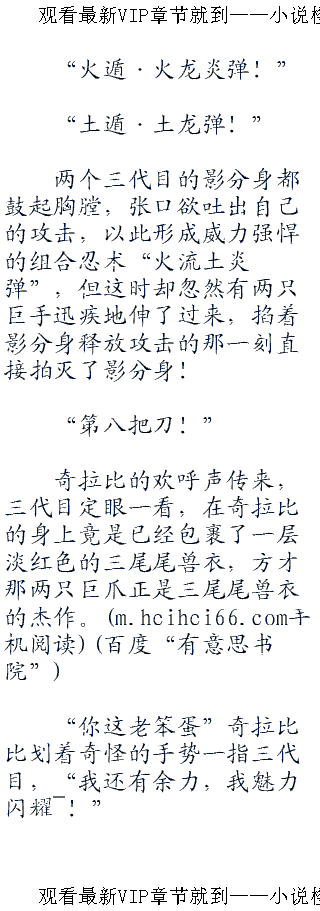 观看最新VIP章节就到——小说
“火遁·火龙炎弹！”
“土遁·土龙弹！”
两个三代目的影分身都
鼓起胸膛，张口欲吐出自己
的攻击，以此形成威力强悍
的组合忍术“火流土炎
弹”，但这时却忽然有两只
巨手迅疾地伸了过来，掐着
影分身释放攻击的那一刻直
接拍灭了影分身！
“第八把刀！”
奇拉比的欢呼声传来，
三代目定眼一看，在奇拉比
的身上竟是已经包裹了一层
淡红色的三尾尾兽衣，方才
那两只巨爪正是三尾尾兽衣
的杰作。(m.hcihci66.com手
机阅读)(百度“有意思书
院”)
“你这老笨蛋”奇拉比
比划着奇怪的手势一指三代
目，“我还有余力，我魅力
闪耀¯！”
观看最新VIP章节就到——小说